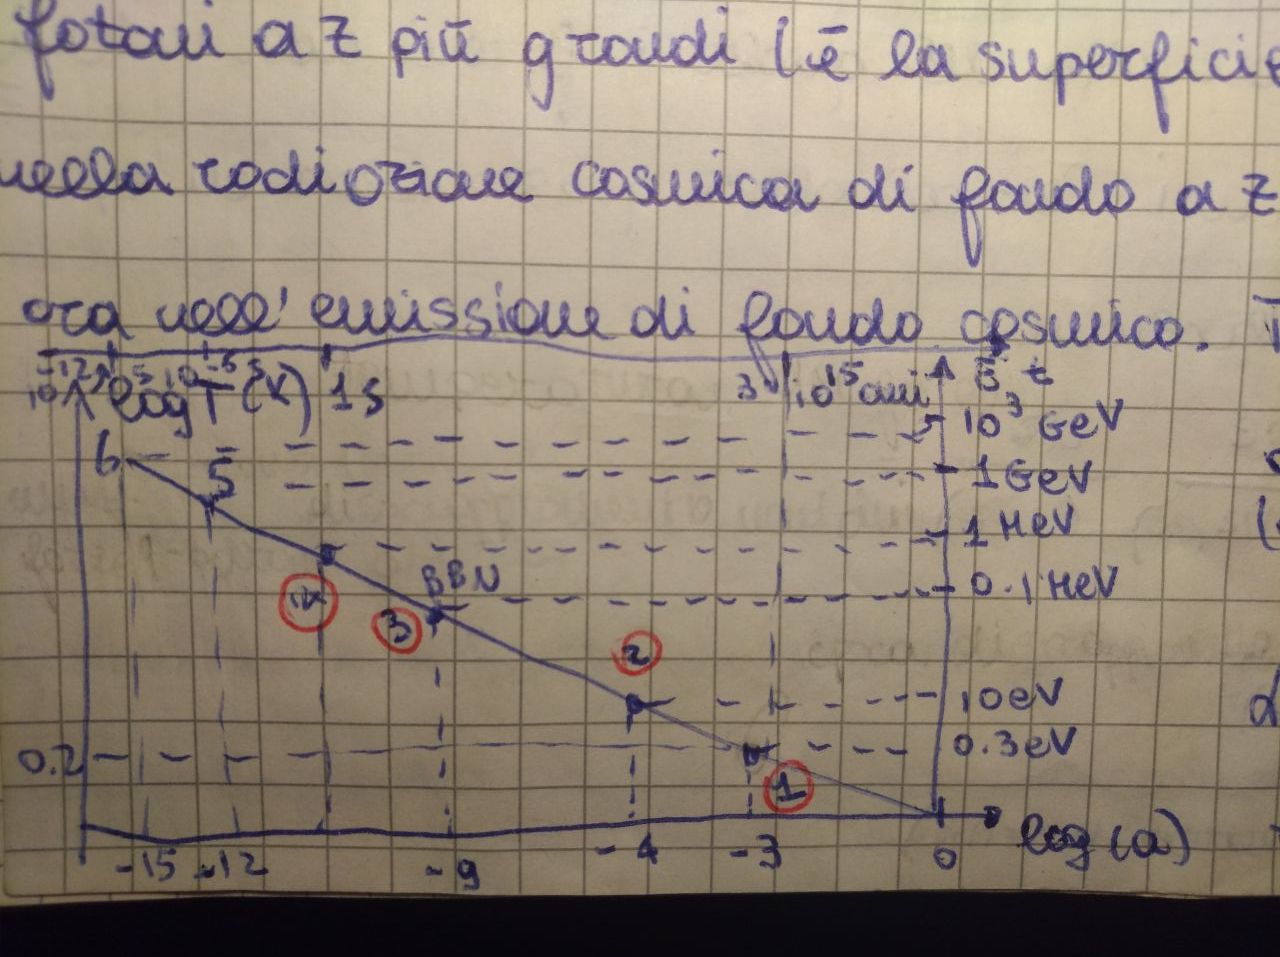 fotoni a z più grandi (è la superficie
nella radiazione cosmica di fondo a z
ora nell'emissione di fondo cosmico.
log T (K) 1s 3 10¹⁵ anni t
10³ GeV
6
5 1 GeV
1 MeV
BBN 0.1 MeV
3
2
10 eV
0.2 0.3 eV
1
-15 -12 -9 -4 -3 0 log(a)